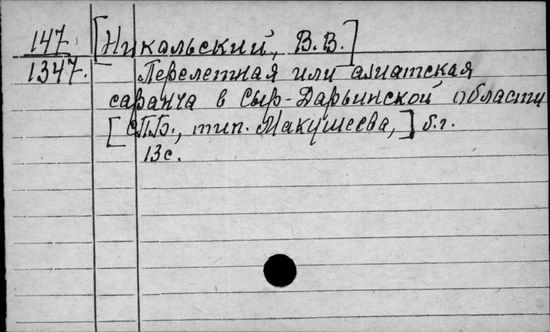 147 [Никольский, В.В.]
1347. Перелетная или азиатская
саранча в Сыр-Дарьинской области
[СПБ., тип. Макушеева,] б.г.
13 с.